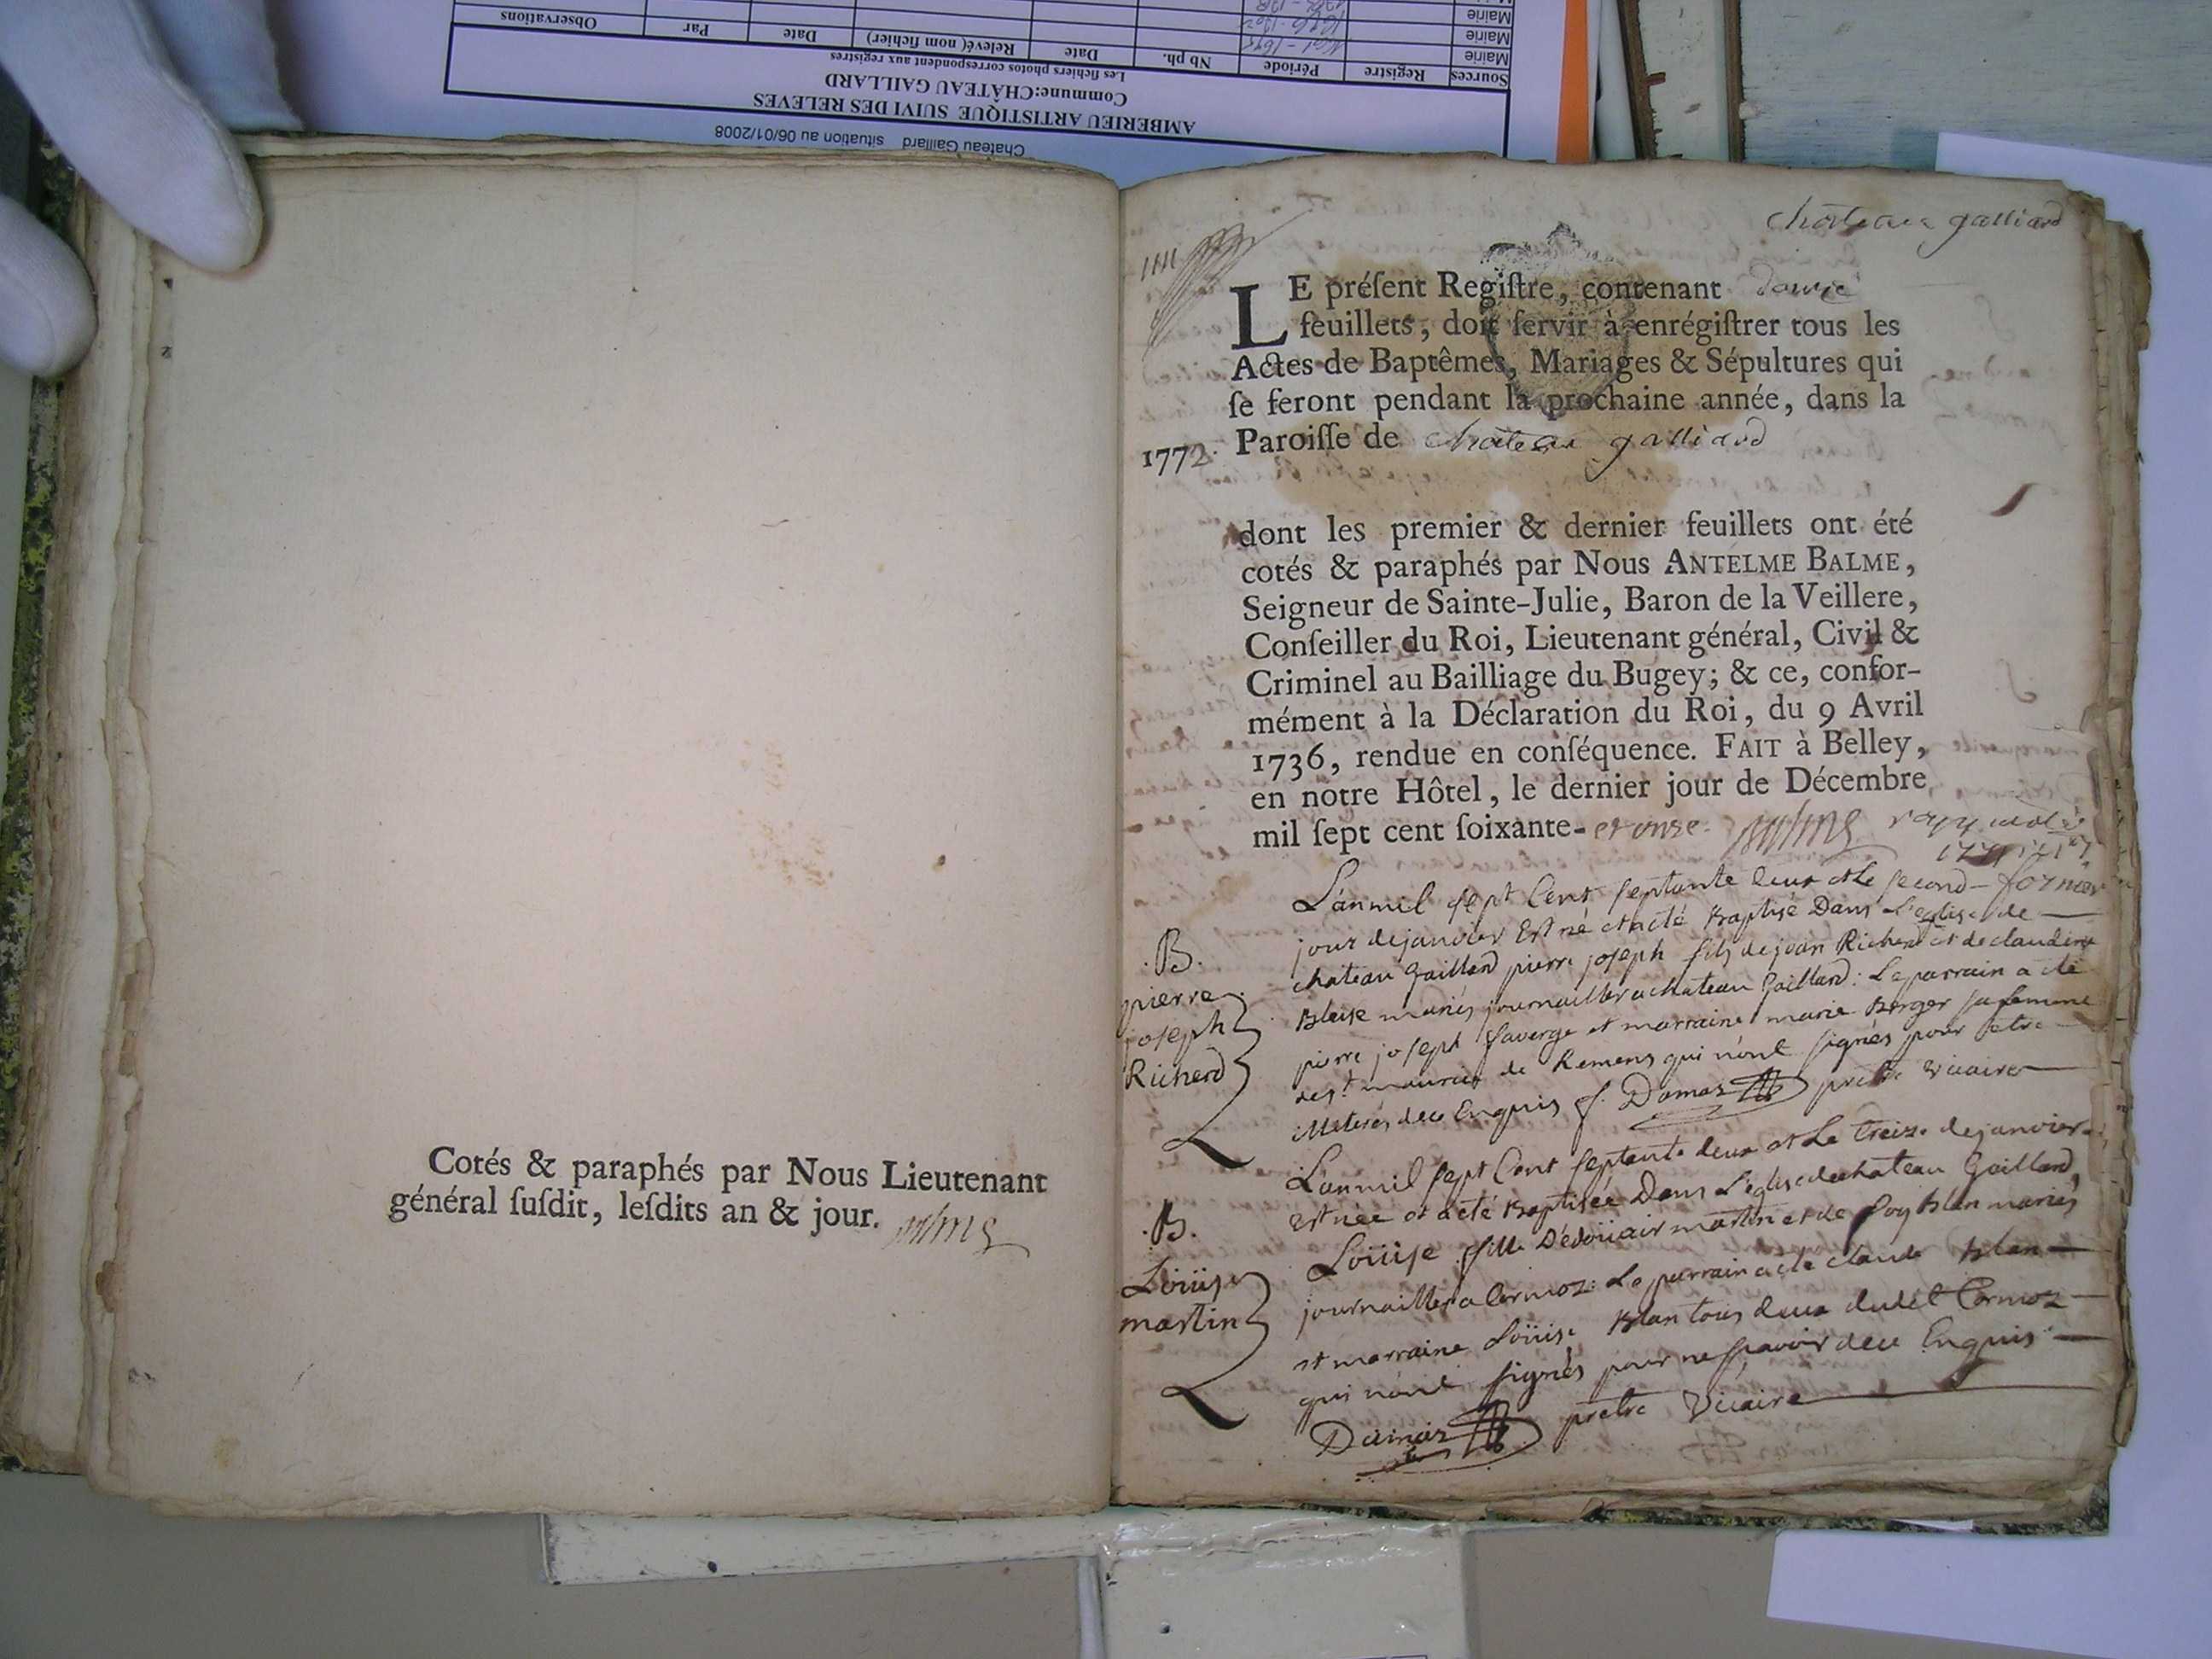 Chateau Gaillard situation au 06/01/2008
AMBERIEU ARTISTIQUE SUIVI DES RELEVES
Commune:CHÂTEAU GAILLARD
Les fichiers photos correspondent aux registres
Sources Registre Période Nb ph. Date Relevé( nom fichier) Date Par Observations
Mairie
Mairie
Mairie
Cotés & paraphés par Nous Lieutenant
général ſuſdit, leſdits an & jour.
chateau galliard
LE préſent Regiſtre, contenant douze
feuillets, doit ſervir à enrégiſtrer tous les
Actes de Baptêmes, Mariages & Sépultures qui
ſe feront pendant la prochaine année, dans la
1772. Paroiſſe de chateau galliard
dont les premier & dernier feuillets ont été
cotés & paraphés par Nous ANTELME BALME,
Seigneur de Sainte-Julie, Baron de la Veillere,
Conſeiller du Roi, Lieutenant général, Civil &
Criminel au Bailliage du Bugey; & ce, confor-
mément à la Déclaration du Roi, du 9 Avril
1736, rendue en conſéquence. FAIT à Belley,
en notre Hôtel, le dernier jour de Décembre
mil ſept cent ſoixante- et onze.
.B.
pierre
joseph
Richerd
L'an mil sept Cent septante deux et Le second
jour de janvier Est né et a eté Baptisé Dans L'eglise de
chateau Gaillard pierre joseph fils de jean Richerd et de claudine
Bleise mariés journaillier a chateau Gaillard: Le parrain a eté
pierre joseph faverge et marraine marie Berger sa femme
de st maurice de Remens qui n'ont signés pour etre
illiterés deu Enquis f. Damas pretre vicaire
.B.
Loüise
martin
L'an mil sept Cent septante deux et Le treize de janvier
est née et a eté Baptisée Dans L'eglise de chateau Gaillard,
Loüise fille D'edoüair martin et de foy Blan mariés
journaillier a Cormoz: Le parrain a eté claude Blan
et marraine Loüise Blan tous deux dudit Cormoz
qui n'ont signés pour ne sçavoir deu Enquis
Damas pretre Vicaire